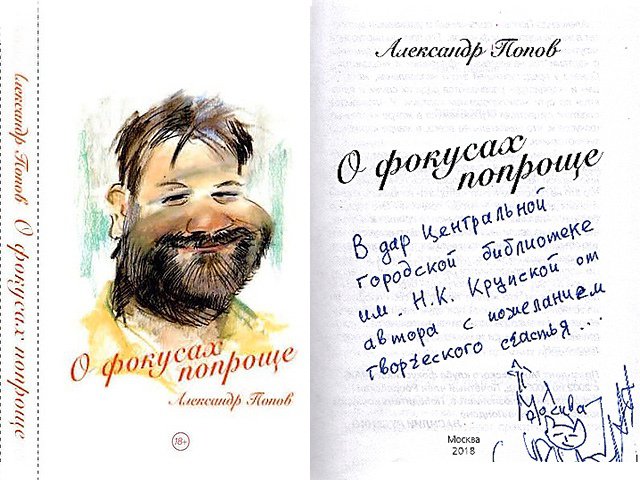 Александр Попов О фокусах попроще
О фокусах
попроще
Александр Попов
18+
Александр Попов
О фокусах
попроще
В дар Центральной
городской библиотеке
им. Н.К. Крупской от
автора с пожеланием
творческого счастья...
Москва
Москва
2018